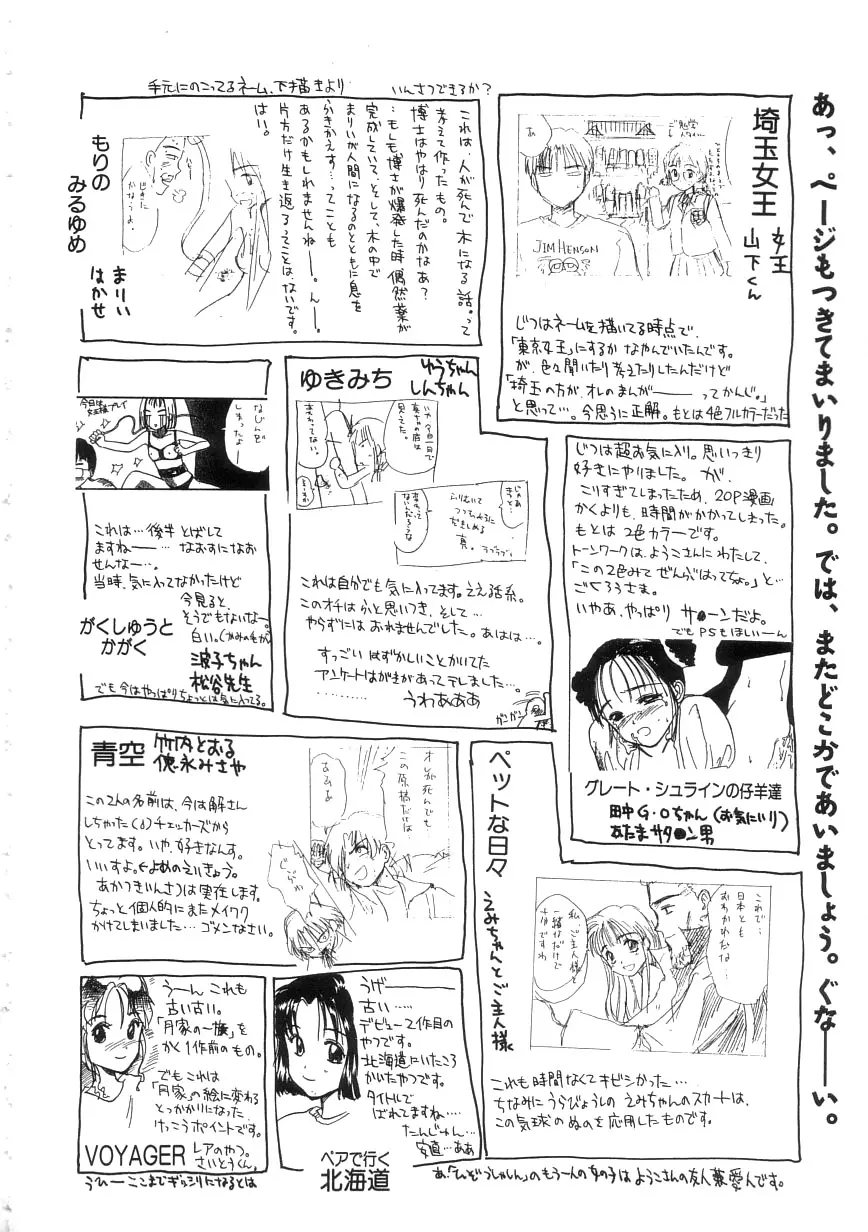 あっ、ページもつきてまいりました。では、またどこかであいましょう。ぐなーーい。
手元にのこってるネーム、下描きより
いんさつできるか?
埼玉女王
女王
山下くん
あ
JIM HENSON
じつはネームを描いてる時点で、
「東京女王」にするか なやんでいたんです。
が、色々聞いたり考えたりしたんだけど
「埼玉の方が、オレのまんが――ってかんじ。」
と思って…。今思うに正解。もとは4色フルカラーだった
これは、人が死んで木になる話。って
考えて作ったもの。
博士はやはり死んだのかなあ?
…もしも博士が爆発した時 偶然薬が
完成していて、そして、木の中で
まりいが人間になるのとともに息を
ふきかえす…ってことも
あるかもしれませんねー。んー。
片方だけ生き返るってことは、ないです。
はい。
もりの
みるゆめ
まりい
はかせ
ゆきみち
ゆうちゃん
しんちゃん
これは自分でも気に入ってます。ええ話系。
このオチは ふと思いつき、そして…
やらずには おれませんでした。あはは…。
すっごい はずかしいことかいてた
アンケートはがきがあってテレました…
…………
うわあああ
ガンガン
今日は
女王様プレイ
なじん
じまったな…
これは… 後半 とばして
ますねー… なおすになお
せんなー…。
当時、気に入ってなかったけど
今見ると、
そうでもないなー。
白い。(かみの毛が)
がくしゅうと
かがく
波子ちゃん
松谷先生
でも今はやっぱりちょっとは気に入ってる。
じつは超お気に入り。思いっきり
好きにやりました。 が、
こりすぎてしまったため、20P漫画
かくよりも、時間がかかってしまった。
もとは2色カラーです。
トーンワークは、ようこさんにわたして、
「この2色みて ぜんぶはってちょ。」と…
ごくろうさま。
いやあ、やっぱり サ●ーンだよ。
でもPSもほしいーん
グレート・シュラインの仔羊達
田中G・Oちゃん(お気にいり)
あたまサタ●ン男
青空
竹内とおる
徳永みさや
この2人の名前は、今は解さん
しちゃった(δ)チェッカーズから
とってます。いや、好きなんす。
いいすよ。(←よめのえいきょう。
あかつきいんさつは実在します。
ちょっと個人的にまたメイワク
かけてしまいました… ゴメンなさい。
オレが死んでも
この原稿だけは…
ペットな日々
えみちゃんとご主人様
これで…
日本とも
おわかれだな…
私、ご主人様と
一緒だけで
幸せですわ
これも時間なくてキビシかった…
ちなみにうらびょうしの えみちゃんのスカートは、
この気球のぬのを応用したものです。
うーん これも
古い古い。
「月家の一族」を
かく1作前のもの。
でもこれは
「月家」の絵に変わる
とっかかりになった、
けっこうポイントです。
VOYAGER
レアのやつ。
さいとうくん。
うげーーー
古い……
デビュー2作目の
やつです。
北海道にいたころ
かいたやつです。
タイトルで
ばれてますね…
たんじゅん…
安直…ああ
ペアで行く
北海道
うひーーここまでぎっシリになるとは
あ、「ひぞうしゃしん」のもう一人の女の子は ようこさんの友人 兼 愛人です。